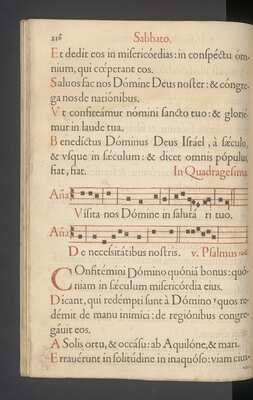 216 Sabbato,
Et dedit eos in misericórdias: in conspéctu óm-
nium, qui cœperant eos.
Saluos fac nos Dómine Deus noster: & cóngre-
ga nos de natiónibus.
Vt confiteámur nómini sancto tuo: & glorié-
mur in laude tua.
Benedíctus Dóminus Deus Israél, à sǽculo,
& vsque in sǽculum: & dicet omnis pópulus,
fiat, fiat. In Quadragesima
Aña
Visita nos Dómine in saluta ri tuo.
Aña
De necessitátibus nostris. v. Psalmus
COnfitémini Dómino quóniã bonus: quó-
niam in sæculum misericórdia eius.
Dicant, qui redémpti sunt à Dómino? quos re-
démit de manu inimíci: de regiónibus congre-
gáuit eos.
A Solis ortu, & occásu: ab Aquilóne, & mari.
Errauérunt in solitúdine in inaquóso: viam ciui-